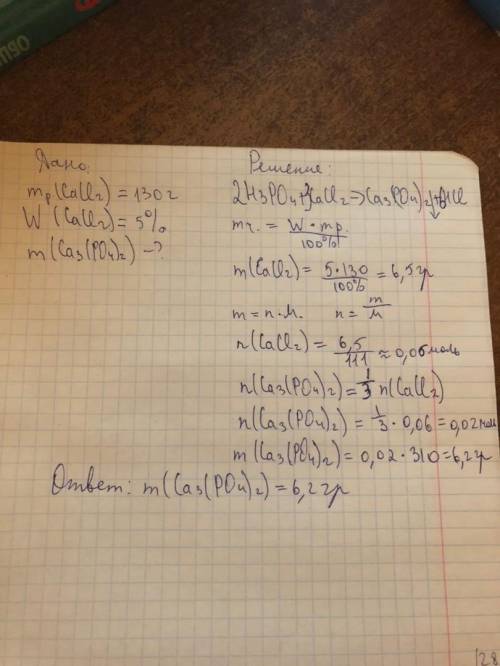 Дано:
mр(CaCl2) = 130 г
W (CaCl2) = 5%
m(Ca3(PO4)2) - ?
Решение:
2H3PO4 + 3CaCl2 -> Ca3(PO4)2↓ + 6HCl
mч. = W · mр. / 100%
m(CaCl2) = 5·130 / 100% = 6,5 гр
m = n·M. n = m / M
n(CaCl2) = 6,5 / 111 ≈ 0,06 моль
n(Ca3(PO4)2) = 1/3 n(CaCl2)
n(Ca3(PO4)2) = 1/3 · 0,06 = 0,02 моль
m(Ca3(PO4)2) = 0,02 · 310 = 6,2 гр
Ответ: m(Ca3(PO4)2) = 6,2 гр